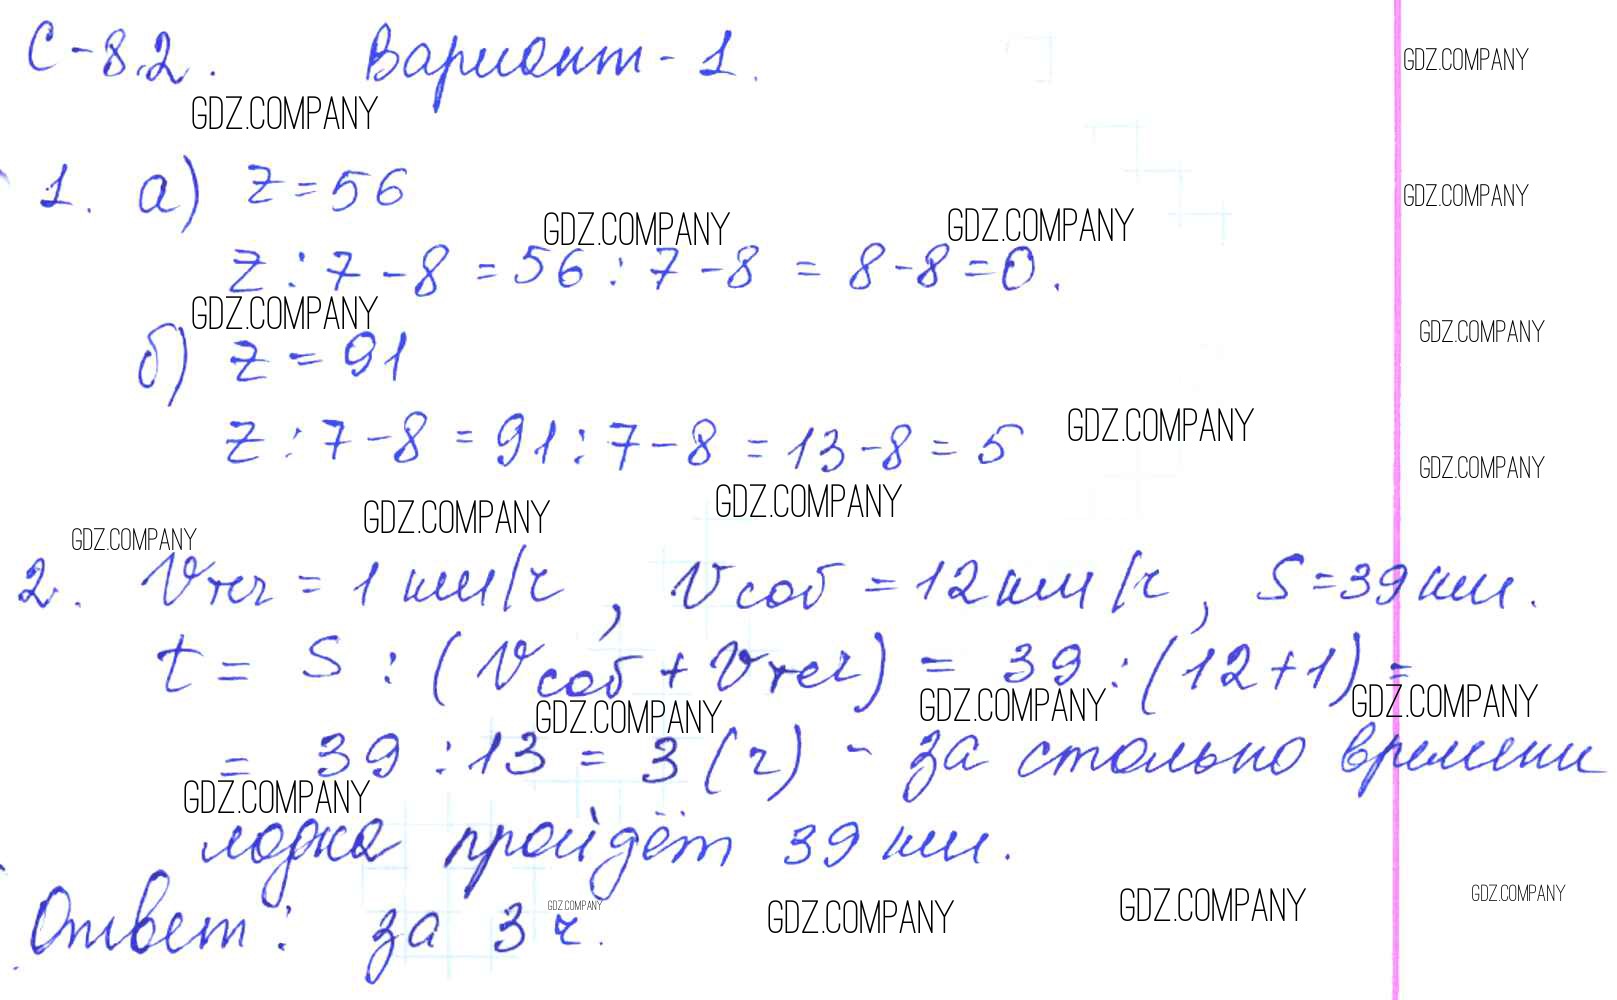 С-8.2. Вариант-1.
GDZ.COMPANY
GDZ.COMPANY
1. а) z=56
GDZ.COMPANY
GDZ.COMPANY GDZ.COMPANY
z:7-8=56:7-8=8-8=0.
GDZ.COMPANY
GDZ.COMPANY
б) z=91
GDZ.COMPANY
z:7-8=91:7-8=13-8=5
GDZ.COMPANY
GDZ.COMPANY GDZ.COMPANY
GDZ.COMPANY
2. Vтеч=1 км/ч, Vсоб=12 км/ч, S=39 км.
t=S:(Vсоб+Vтеч)=39:(12+1)=
GDZ.COMPANY GDZ.COMPANY GDZ.COMPANY
=39:13=3(ч)-за столько времени
GDZ.COMPANY
лодка пройдёт 39 км.
GDZ.COMPANY GDZ.COMPANY GDZ.COMPANY GDZ.COMPANY
Ответ: за 3 ч.